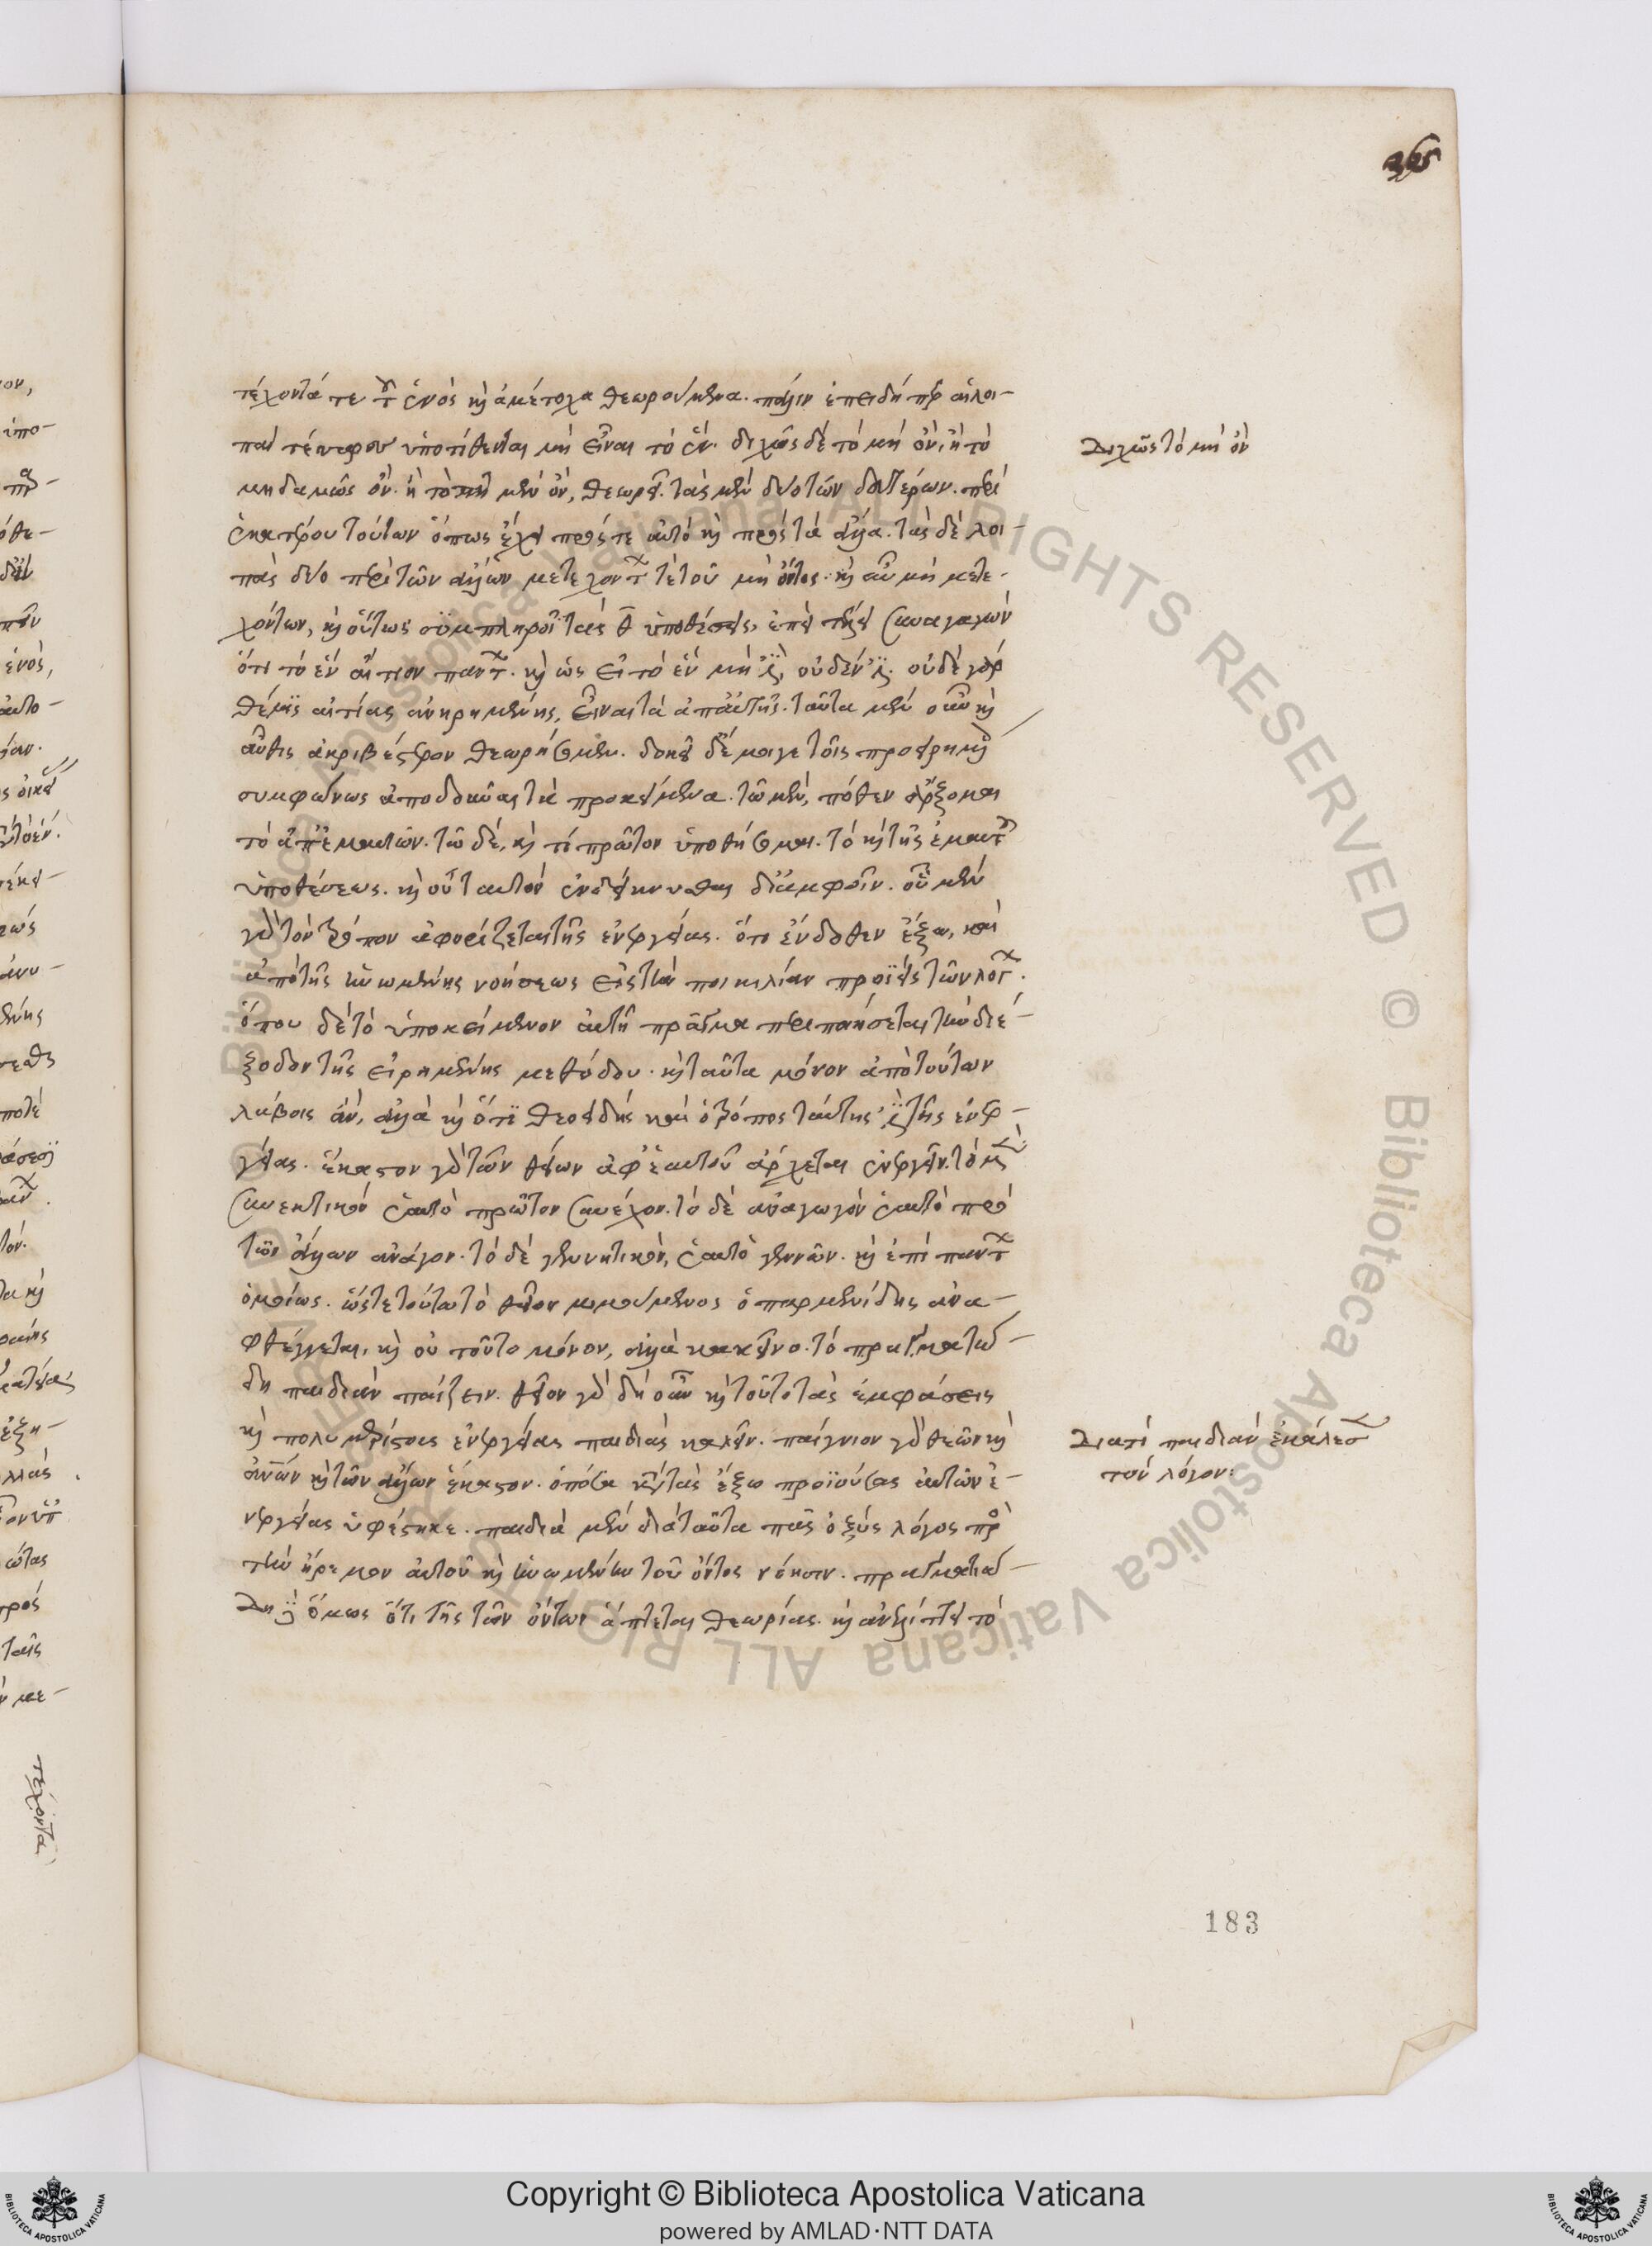 365
τέχοντά τε τοῦ ἑνὸς καὶ ἀμέτοχα θεωρούμενα. πάλιν ἐπειδήπερ αἱ λοι-
παὶ τέτταρες ὑποτίθενται μὴ εἶναι τὸ ἕν. διχῶς δὲ τὸ μὴ ὄν, ἢ τὸ
μηδαμῶς ὄν. ἢ τὸ πῆ μὲν ὄν, θεωρεῖ τὰς μὲν δύο τῶν δευτέρων. περὶ
ἑκατέρου τούτων ὅπως ἔχει πρός τε αὐτὸ καὶ πρὸς τὰ ἄλλα. τὰς δὲ λοι-
πὰς δύο περὶ τῶν ἄλλων μετεχόντων τε τοῦ μὴ ὄντος. καὶ αὖ μὴ μετε-
χόντων, καὶ οὕτως συμπληροῖ τὰς θ ὑποθέσεις, ἐπὶ τέλει συναγαγὼν
ὅτι τὸ ἓν αἴτιον πάντων. καὶ ὡς εἰ τὸ ἓν μὴ ἔστιν, οὐδέν ἐστιν. οὐδὲ γὰρ
θέμις αἰτίας ἀνῃρημένης, εἶναι τὰ ἀπ' αὐτῆς. ταῦτα μὲν οὖν καὶ
αὖθις ἀκριβέστερον θεωρήσομεν. δοκεῖ δέ μοι γε τοῖς προειρημένοις
συμφώνως ἀποδοῦναι τὰ προκείμενα. τῷ μὲν, πόθεν ἄρξομαι
τὸ ἀπ' ἐμαυτοῦ. τῷ δὲ, καὶ τί πρῶτον ὑποθήσομαι. τὸ καὶ τῆς ἐμαυτοῦ
ὑποθέσεως. καὶ οὖν ταυτὸν ἐνδείκνυσθαι δι' ἀμφοῖν. οὗ μὲν
γὰρ τὸν τρόπον ἀφορίζεται τῆς ἐνεργείας. ὅτι ἔνδοθεν ἔξω, καὶ
ἀπὸ τῆς ἡνωμένης νοήσεως εἰς τὴν ποικιλίαν προϊούσης τῶν λόγων.
ὅπου δὲ τὸ ὑποκείμενον αὐτῇ πρᾶγμα περὶ ποιήσεται τὴν διέ-
ξοδον τῆς εἰρημένης μεθόδου. καὶ ταῦτα μόνον ἀπὸ τούτων
λάβοις ἄν, ἀλλὰ καὶ ὅτι θεοειδὴς καὶ ὁ τρόπος ταύτης ἐστὶ τῆς ἐνερ-
γείας. ἕκαστον γὰρ τῶν θείων ἀφ' ἑαυτοῦ ἄρχεται ἐνεργεῖν. τὸ μὲν
συνεκτικὸν ἑαυτὸ πρῶτον συνέχον. τὸ δὲ ἀναγωγὸν ἑαυτὸ πρὸ
τῶν ἄλλων ἀνάγον. τὸ δὲ γεννητικὸν, ἑαυτὸ γεννῶν. καὶ ἐπὶ πάντων
ὁμοίως. ὥστε τούτῳ τὸ θεῖον μιμούμενος ὁ παρμενίδης ἀνα-
φθέγγεται, καὶ οὐ τοῦτο μόνον, ἀλλὰ κακεῖνο. τὸ πραγματώ-
δη παιδιὰν παίζειν. θεῖον γὰρ δὴ οὖν καὶ τοῦτο τὰς ἐμφάσεις
καὶ πολυμερίστους ἐνεργείας παιδιὰς καλεῖν. παίγνιον γὰρ θεῶν καὶ
ἀνθρώπων καὶ τῶν ἄλλων ἕκαστον. ὁπόσα κατὰ τὰς ἔξω προϊούσας αὐτῶν ἐ-
νεργείας ὑφέστηκε. παιδιὰ μὲν διὰ ταῦτα πᾶς ὁ ἔξω λόγος πρὸς
τὴν ἤρεμον αὐτοῦ καὶ ἡνωμένην τοῦ ὄντος νόησιν. πραγματιώ-
δης ὅμως ὅτι τῆς τῶν ὄντων ἅπτεται θεωρίας. καὶ ἀνελίττει τὸ
Διχῶς τὸ μὴ ὄν
Διατί παιδιὰν ἐκάλεσε
τὸν λόγον:
τέχοντα
183
Copyright © Biblioteca Apostolica Vaticana
powered by AMLAD·NTT DATA
© Biblioteca Apostolica Vaticana ALL RIGHTS RESERVED